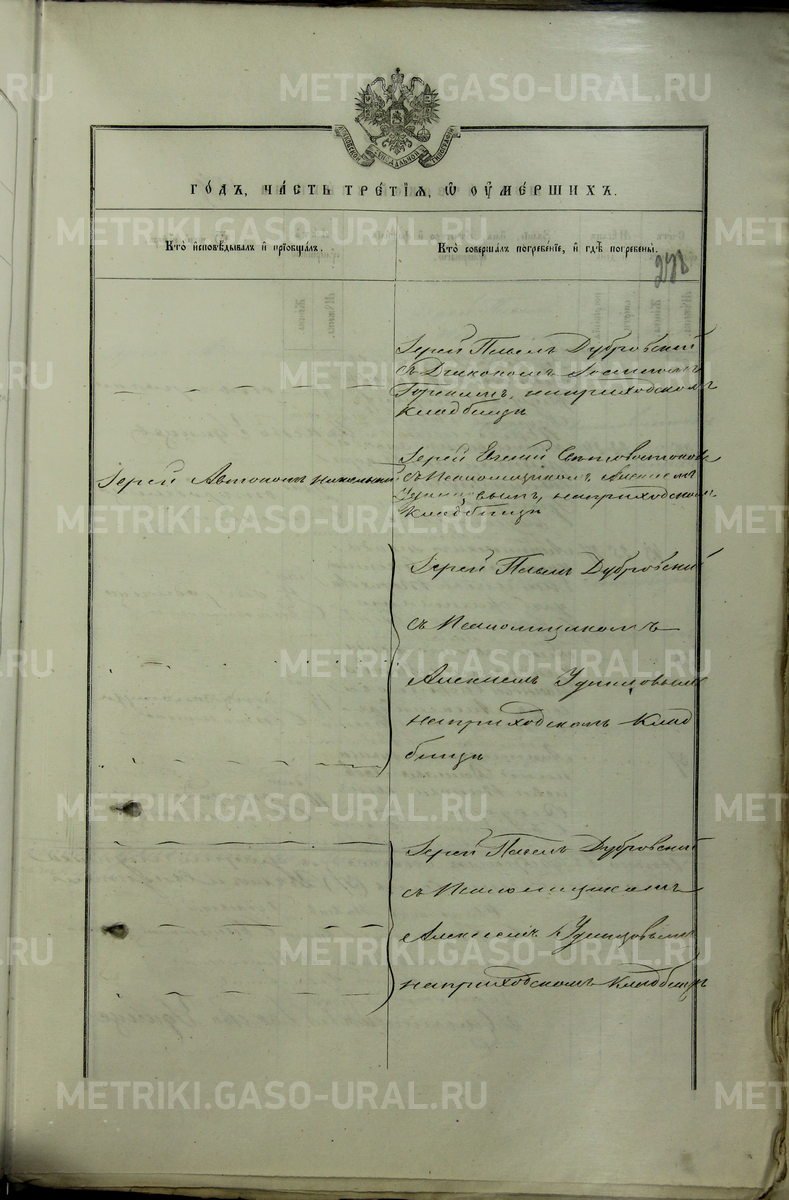 METRIKI.GASO-URAL.RU
го́дъ, ча́сть тре́тїѧ, ѡ҆ ᲂу҆ме́ршихъ.
Кто̀ и҆сповѣ́дывалъ и҆ прїѡбща́лъ.
Кто̀ соверша́лъ погребе́нїе, и҆ гдѣ̀ погребены̀.
Іерей Павелъ Дубровский
съ Діакономъ
на приходскомъ
кладбищѣ
Іерей Автономъ
Іерей Евгений
съ Псаломщикомъ Алексѣемъ
на приходскомъ
кладбищѣ
Іерей Павелъ Дубровский
съ Псаломщикомъ
Алексѣемъ Удинцовымъ
на приходскомъ клад
бищѣ
Іерей Павелъ Дубровский
съ Псаломщикомъ
Алексѣемъ Удинцовымъ
на приходскомъ кладбищѣ